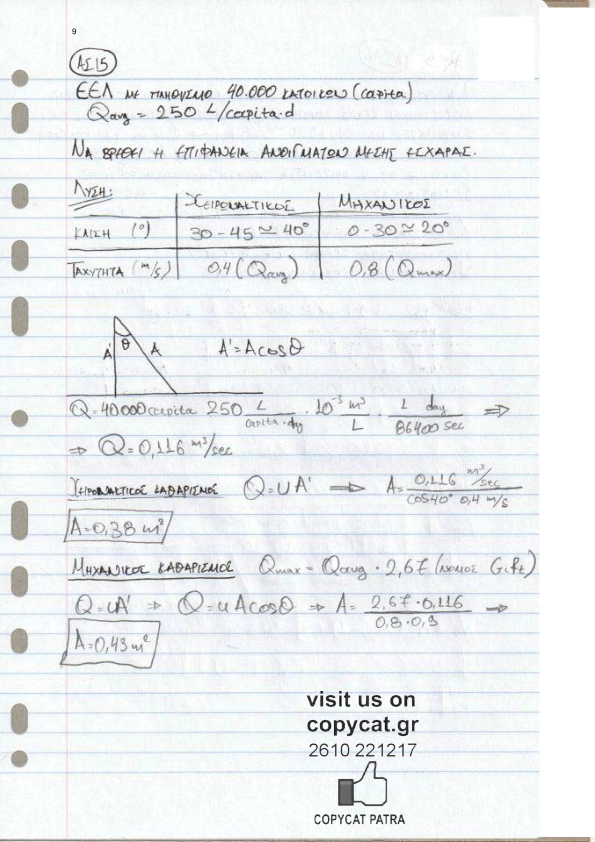 9
ΑΣ 15
ΕΕΛ ΜΕ ΠΛΗΘΥΣΜΟ 40.000 ΚΑΤΟΙΚΩΝ (capita)
Qavg = 250 L/capita·d
ΝΑ ΒΡΕΘΕΙ Η ΕΠΙΦΑΝΕΙΑ ΑΝΟΙΓΜΑΤΩΝ ΜΕΣΗΣ ΕΣΧΑΡΑΣ.
ΛΥΣΗ:
ΧΕΙΡΟΝΑΚΤΙΚΟΣ ΜΗΧΑΝΙΚΟΣ
ΚΛΙΣΗ (°) 30 - 45 ≃ 40° 0 - 30 ≃ 20°
ΤΑΧΥΤΗΤΑ (m/s) 0,4 (Qavg) 0,8 (Qmax)
A' θ A A' = A cosθ
Q = 40000 capita 250 L/capita·day · 10⁻³ m³/L · 1 day/86400 sec ⇒
⇒ Q = 0,116 m³/sec
ΧΕΙΡΟΝΑΚΤΙΚΟΣ ΚΑΘΑΡΙΣΜΟΣ Q = UA' ⇒ A = 0,116 m³/sec / cos40° 0,4 m/s
A = 0,38 m²
ΜΗΧΑΝΙΚΟΣ ΚΑΘΑΡΙΣΜΟΣ Qmax = Qavg · 2,67 (ΝΟΜΟΣ Gift)
Q = uA' ⇒ Q = u A cosθ ⇒ A = 2,67 · 0,116 / 0,8 · 0,9 ⇒
A = 0,43 m²
visit us on
copycat.gr
2610 221217
COPYCAT PATRA